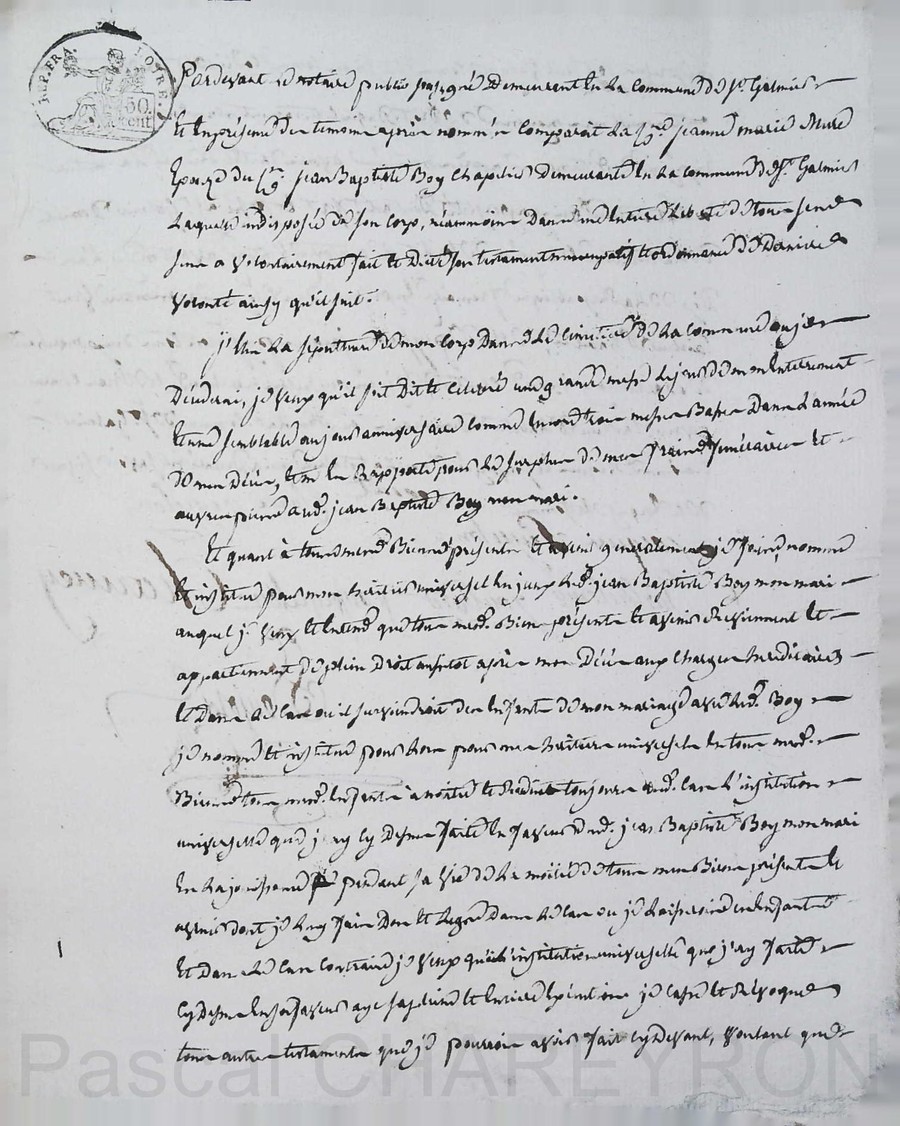 REP. FRA
LOIRE.
50
cent
Pardevant le notaire public soussigné Demeurant En La Commune De St. Galmier
Et En présence des temoins après nommés Comparait La Cne. jeanne marie Mure
Epouze du Cn. jean Baptiste Boy Chapelier Demeurante En La Commune de St. Galmier
Laquelle indisposée de son Corp, néammoins Dans une Entiere Liberté de tous ses sens
a volontairement fait et Dicté son testament noncupatif et ordonnance De Derniere
volonté ainsy qu'il suit.
j'Elis La sépulture de mon Corp Dans Le Cimetiere de La Commune ou je
Décéderai, je veux qu'il soit Dit et Célébré une grande messe Le jour de mon Enterrement
et une semblable au jour anniversaire Comme Encore trois messes Basses Dans L'année
De mon Décès, Et m'En Rapporte pour Le surplus De mes fraix funéraires Et
œuvres pieuses aud. jean Baptiste Boy mon mari.
Et quant à tous mes Biens présents et avenir generalement je fais, nomme
Et institue pour mon héritier universel Led. jean Baptiste Boy mon mari
auquel je veux Et Entend que tous mesd. Biens présents Et avenir Reviennent Et
appartiennent De plein Droit aussitot après mon Décès aux Charges héréditaires
Et Dans Le Cas ou il surviendroit des Enfants De mon mariage avec Led. Boy
je nomme Et institue pour Lors pour mes héritiers universels En tous mesd.
Biens tous mesd. Enfants a naitre Et Réduis toujours aud. Cas L'institution
universelle que j'ay Cy Dessus faite En faveur dud. jean Baptiste Boy mon mari
En La jouissance pendant sa vie De La moitié De tous mes Biens présents Et
avenir dont je Luy fais Don Et Legs Dans Le Cas ou je Laisserois des Enfants
Et Dans Le Cas Contraire je veux que L'institution universelle que j'ay faite
Cy Dessus En sa faveur aye sa pleine Et Entiere Exécution je Casse Et Révoque
tous autres testaments que je pourrois avoir fait Cy Devant, voulant que
Pascal CHAREYRON